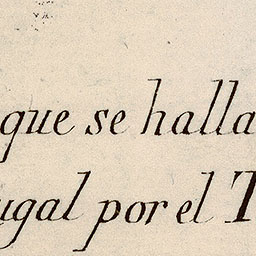 que se halla
ugal por el T